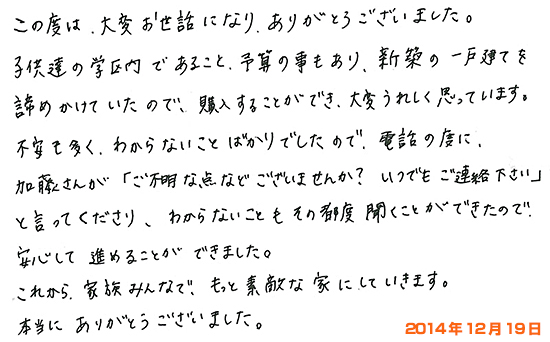 この度は、大変お世話になり、ありがとうございました。
子供達の学区内であること、予算の事もあり、新築の一戸建てを
諦めかけていたので、購入することができ、大変うれしく思っています。
不安も多く、わからないことばかりでしたので、電話の度に、
加藤さんが「ご不明な点などございませんか？いつでもご連絡下さい」
と言ってくださり、わからないこともその都度聞くことができたので、
安心して進めることができました。
これから、家族みんなで、もっと素敵な家にしていきます。
本当にありがとうございました。
2014年12月19日